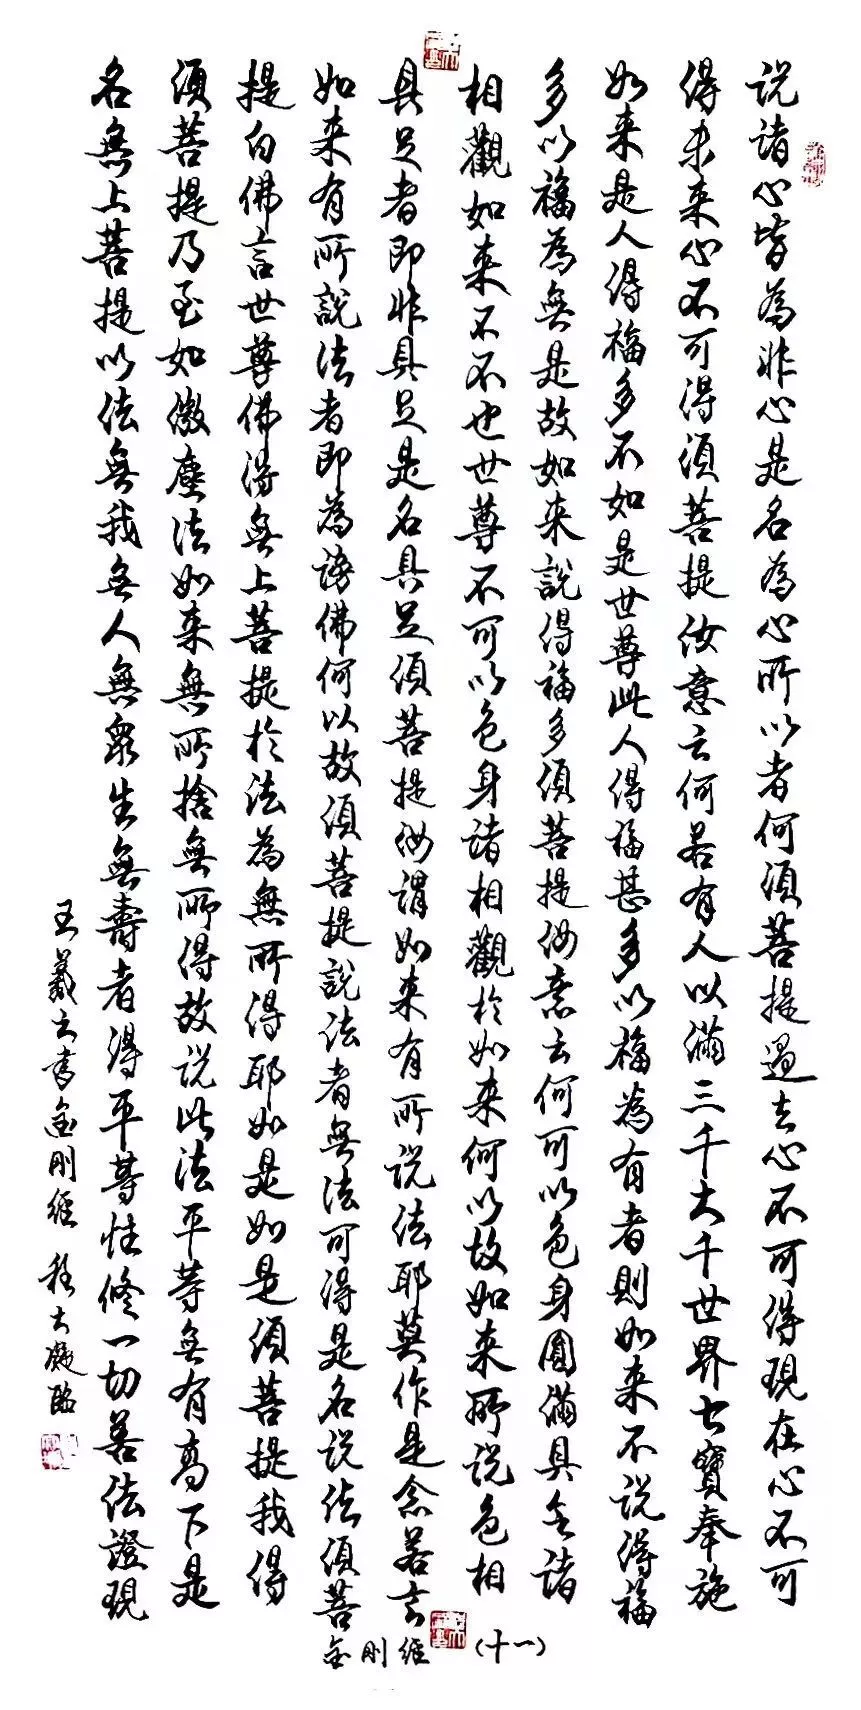 説諸心皆為非心是名為心所以者何須菩提過去心不可得現在心不可
得未来心不可得須菩提汝意云何若有人以滿三千大千世界七寶奉施
如来是人得福多不如是世尊此人得福甚多以福為有者則如来不説得福
多以福為無是故如来說得福多須菩提汝意云何可以色身圓滿具足諸
相觀如来不不也世尊不可以色身諸相觀於如来何以故如来所説色相
具足者即非具足是名具足須菩提汝謂如来有所説法耶莫作是念若言
如来有所說法者即為謗佛何以故須菩提說法者無法可得是名説法須菩
提白佛言世尊佛得無上菩提於法為無所得耶如是如是須菩提我得
須菩提乃至如微塵法如来無所捨無所得故説此法平等無有高下是
名無上菩提以法無我無人無衆生無壽者得平等性修一切善法證現
王羲之書金剛經 程大凝臨
金剛經 (十一)